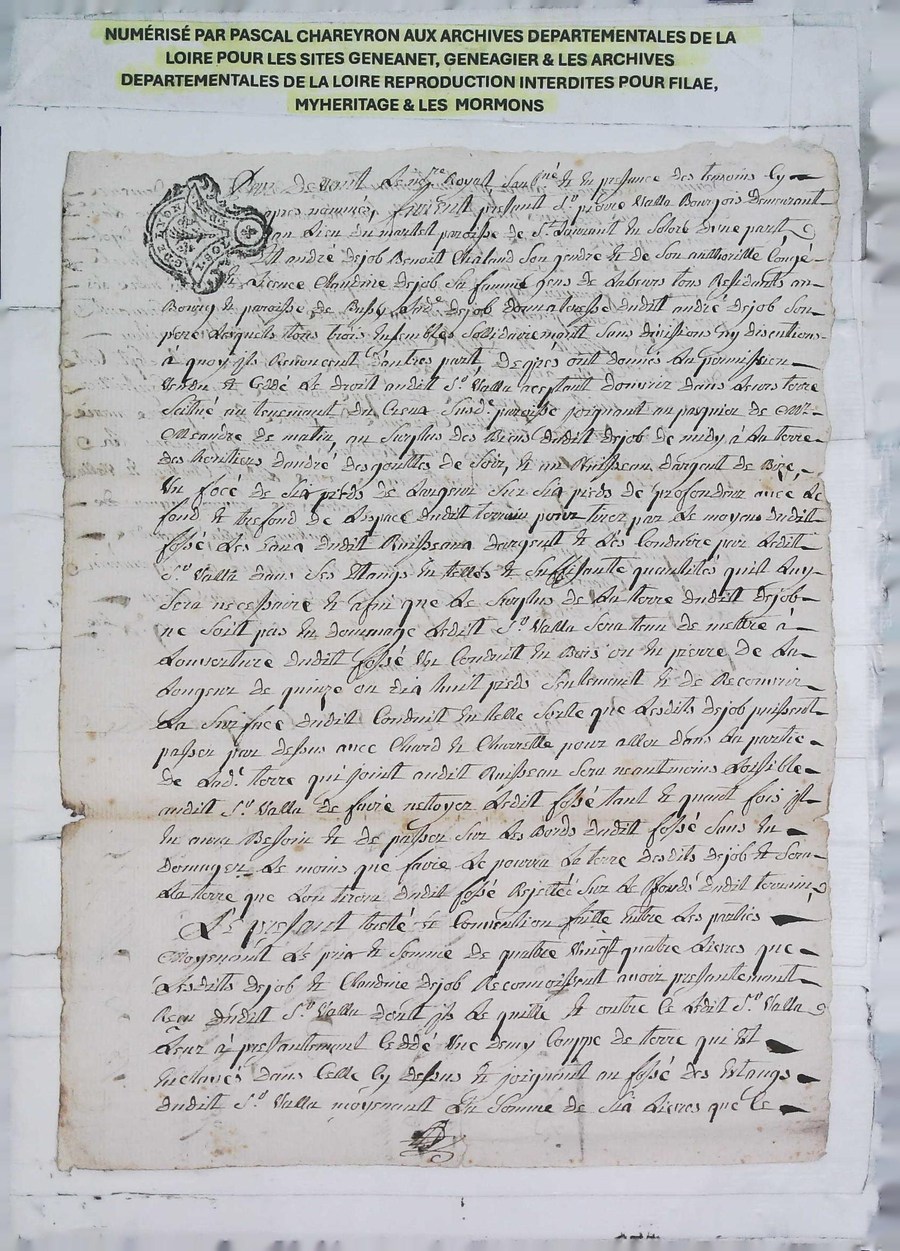 NUMÉRISÉ PAR PASCAL CHAREYRON AUX ARCHIVES DEPARTEMENTALES DE LA
LOIRE POUR LES SITES GENEANET, GENEAGIER & LES ARCHIVES
DEPARTEMENTALES DE LA LOIRE REPRODUCTION INTERDITES POUR FILAE,
MYHERITAGE & LES MORMONS
Par de vant Le no.re Royal & en pressance des temoins Cy
apres nommés, present S.r pierre Valla Bourgois Demeurant
au Lieu du martet paroisse de S.t Laurant en Solore Dune part
Et andré dejob Benoit Chaland Son gendre & de Son authoritté Congé
& Licence Claudine dejob Sa femme gens de Labeurs tous Residants au
Bourg & paroisse de Bussy Lad.e dejob donnateresse dudit andré dejob Son
pere Lesquels tous trois Ensembles Sollidairement Sans divission ny discution
à quoy ils Renoncent d'autres part De grés ont donnés La permission
Vendu & Ceddé Le droit audit S.r Valla douvrir dans Leurs terre
Scitué au tenement du Creux Susd.e paroisse joignant au pasquier de M.r
Meandre de matin, au Surplus des Biens dudit dejob de midy, à La terre
des heritiers dandré desgouttes de Soir, & au Ruisseau dargent de Bize,
Un focé de Six pieds de Largeur Sur Six pieds de profondeur avec Le
fond & trefond de Lespace dudit terrain pour tirer par Le moyen dudit
fossé Les Eaux dudit Ruisseaux dargent & Les Conduire par Ledit
S.r Valla dans Ses Etangs En telles & Suffisante quantités quil Luy
Sera necessaire & afin que Le Surplus de La terre dudit dejob
ne Soit pas En dommage Ledit S.r Valla Sera tenu de mettre à
Louverture dudit fossé Un Conduit En Bois ou En pierre de La
Longeur de quinze ou dix huit pieds Seulement & de Recouvrir
La Surface dudit Conduit En telle Sorte que Lesdits dejob puissent
passer par dessus avec Chard & Charrette pour aller dans La partie
de Lad.e terre qui joint audit Ruisseau Sera neantmoins Loisible
audit S.r Valla de faire netoyer Ledit fossé tant & quant fois il
En aura Bessoin & de passer Sur Les Bords dudit fossé Sans En
Domager Le moins que faire Le pourra La terre desdits dejob & Sera
La terre que Lon tirera dudit fossé Rejettée Sur Le Bords dudit terrain
Le pressant traité & Convention faitte Entre Les parties
Moyenent Le prix & Somme de quattre Vingt quattre Livres que
Lesdits dejob & Claudine dejob Reconnoissent avoir pressantement
Reçu dudit S.r Valla dont ils Le quitte & outre Ce Ledit S.r Valla
Leur à pressantement Ceddé Une demy Couppe de terre qui Est
Enclavés dans Celle Cy dessus & joignant au fossé des Etangs
dudit S.r Valla moyenent La Somme de Six Livres que Le